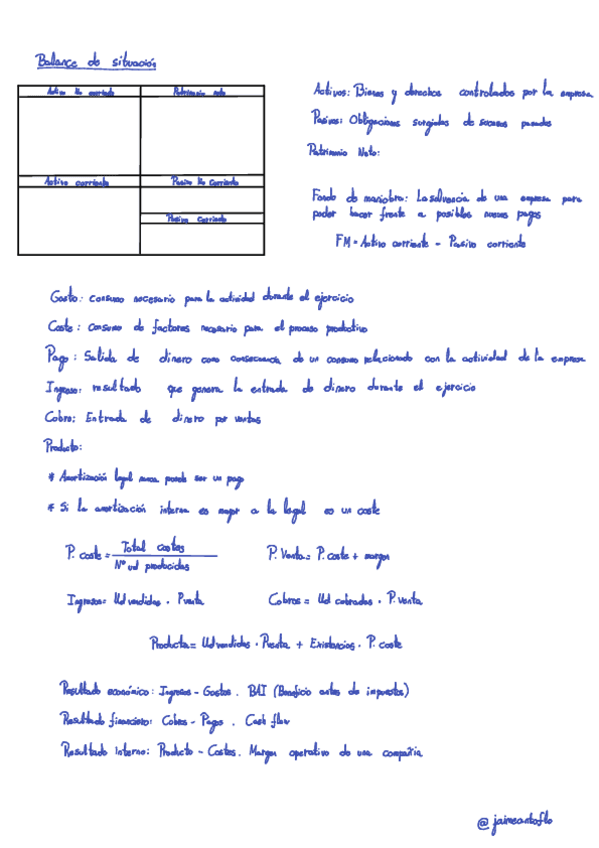 Balance de situación
Activo No corriente
Patrimonio neto
Activo corriente
Pasivo No Corriente
Pasivo Corriente
Activos: Bienes y derechos controlados por la empresa
Pasivos: Obligaciones surgidas de sucesos pasados
Patrimonio Neto:
Fondo de maniobra: La solvencia de una empresa para
poder hacer frente a posibles nuevos pagos
FM = Activo corriente - Pasivo corriente
Gasto: consumo necesario para la actividad durante el ejercicio
Coste: consumo de factores necesario para el proceso productivo
Pago: Salida de dinero como consecuencia de un consumo relacionado con la actividad de la empresa
Ingreso: resultado que genera la entrada de dinero durante el ejercicio
Cobro: Entrada de dinero por ventas
Producto:
* Amortización legal nunca puede ser un pago
* Si la amortización interna es mayor a la legal es un coste
P. coste = Total costes / Nº ud producidas
P. Venta = P. coste + margen
Ingresos = Ud vendidas · P venta
Cobros = Ud cobradas · P. venta
Producto = Ud vendidas · P venta + Existencias · P. coste
Resultado económico: Ingresos - Gastos. BAI (Beneficio antes de impuestos)
Resultado financiero: Cobros - Pagos. Cash flow
Resultado Interno: Producto - Costes. Margen operativo de una compañía
@jaimeantoflo